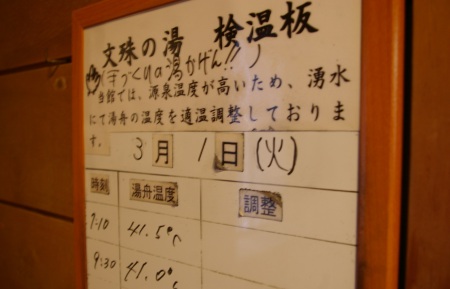 文珠の湯 検温板
(手づくりの湯かげん!!)
当館では、源泉温度が高いため、湧水
にて湯舟の温度を適温調整しておりま
す。
3月1日(火)
時刻 湯舟温度 調整
7:10 41.5℃
9:30 41.0℃